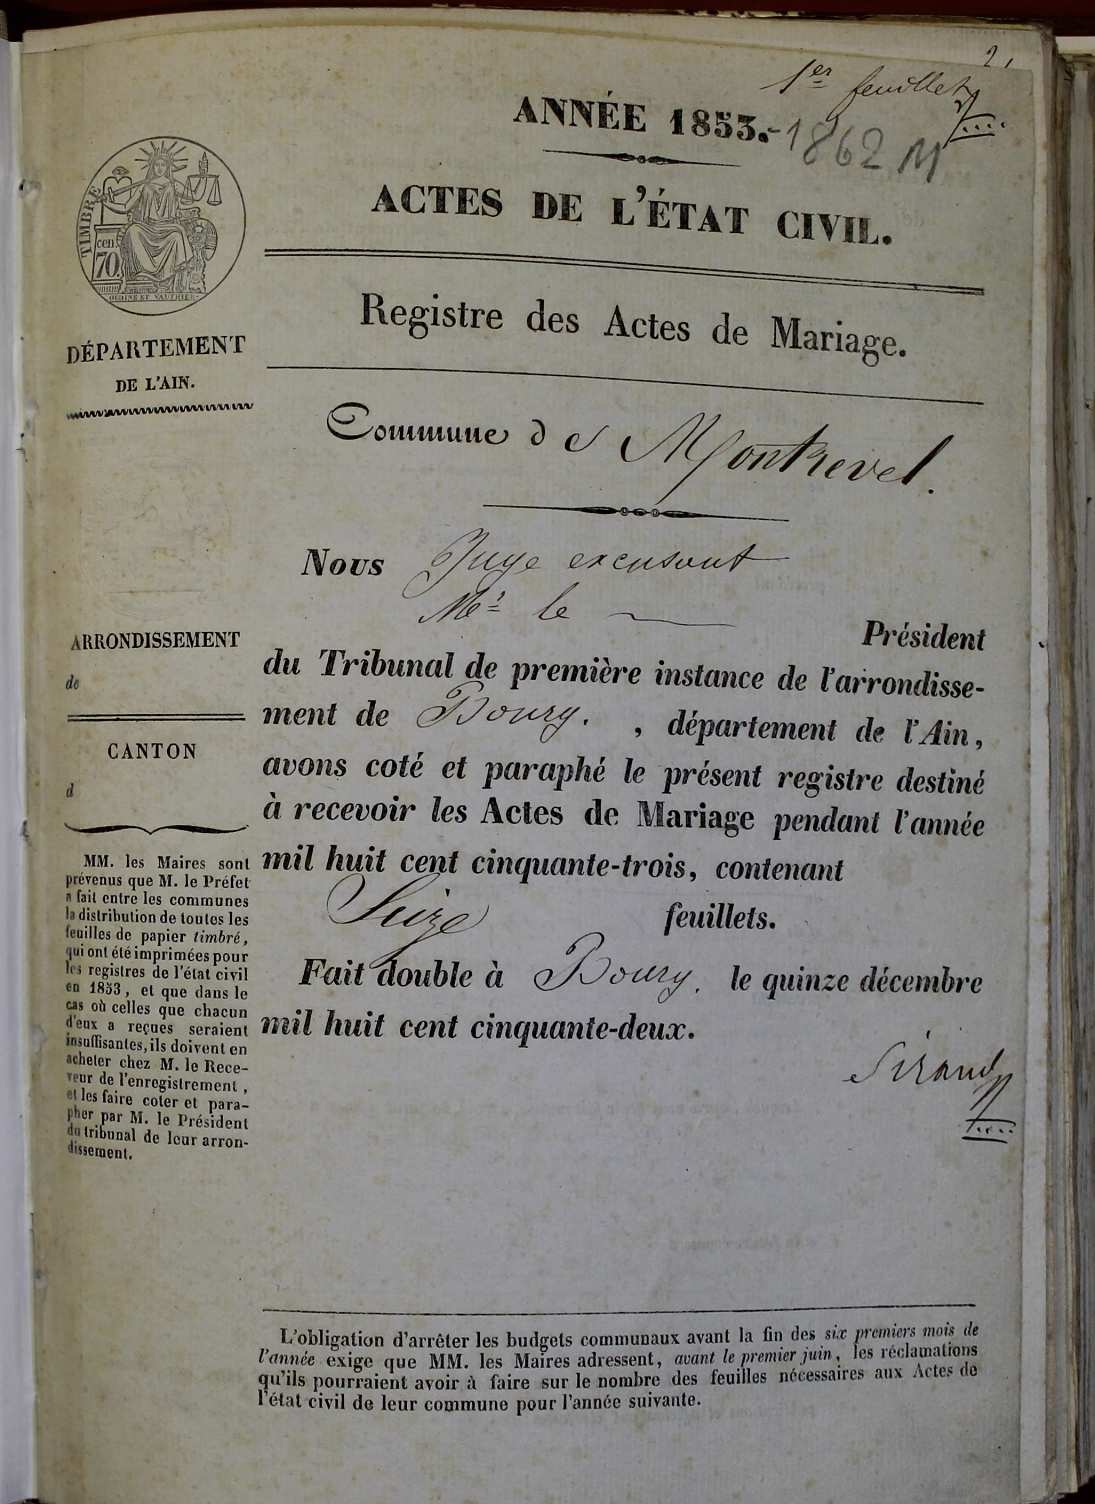 2,
1er feuillet
ANNÉE 1853.-1862 M
ACTES DE L'ÉTAT CIVIL.
TIMBRE
70 cen.
OUDINÉ ET VAUTHIER
DÉPARTEMENT
DE L'AIN.
Registre des Actes de Mariage.
Commune de Montrevel.
Nous Juge excusant
Mr le
Président
du Tribunal de première instance de l'arrondisse-
ment de Bourg. , département de l'Ain,
avons coté et paraphé le présent registre destiné
à recevoir les Actes de Mariage pendant l'année
mil huit cent cinquante-trois, contenant
Seize feuillets.
Fait double à Bourg. le quinze décembre
mil huit cent cinquante-deux.
Sirand
ARRONDISSEMENT
de
CANTON
d
MM. les Maires sont
prévenus que M. le Préfet
a fait entre les communes
la distribution de toutes les
feuilles de papier timbré,
qui ont été imprimées pour
les registres de l'état civil
en 1853, et que dans le
cas où celles que chacun
d'eux a reçues seraient
insuffisantes, ils doivent en
acheter chez M. le Rece-
veur de l'enregistrement,
et les faire coter et para-
pher par M. le Président
du tribunal de leur arron-
dissement.
L'obligation d'arrêter les budgets communaux avant la fin des six premiers mois de
l'année exige que MM. les Maires adressent, avant le premier juin, les réclamations
qu'ils pourraient avoir à faire sur le nombre des feuilles nécessaires aux Actes de
l'état civil de leur commune pour l'année suivante.